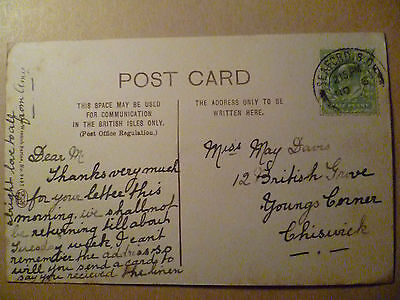 POST CARD
THIS SPACE MAY BE USED
FOR COMMUNICATION
IN THE BRITISH ISLES ONLY.
(Post Office Regulation.)
THE ADDRESS ONLY TO BE
WRITTEN HERE.
SEAFORD S.O.
Dear M
Thanks very much
for your letter this
morning, we shall not
be returning till about
Tuesday week I can't
remember the address so
will you send a card to
say you recieved the linen
alright love to all
from Annie
Miss May Davis
12 British Grove
Youngs Corner
Chiswick